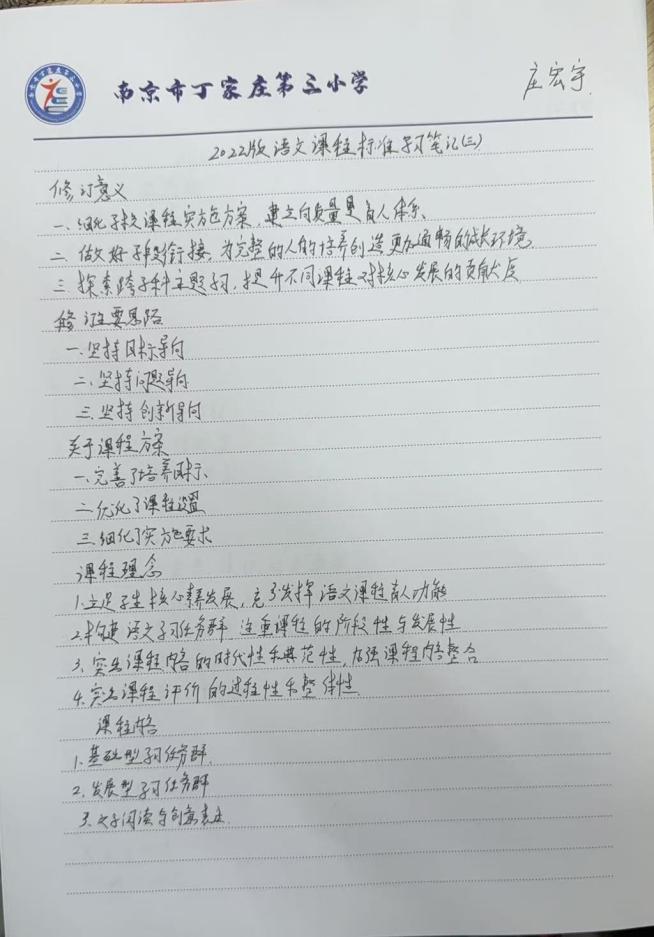 南京市丁家庄第三小学
庄宏宇
2022版语文课程标准学习笔记(三)
修订意义
一、细化学校课程实施方案,建立高质量是育人体系、
二、做好学段衔接,为完整的人的培养创造更加通畅的成长环境。
三、探索跨学科主题学习,提升不同课程对核心发展的贡献大点
修订主要思路
一.坚持目标导向
二.坚持问题导向
三.坚持创新导向
关于课程方案
一.完善了培养目标、
二.优化了课程设置
三.细化了实施要求
课程理念
1.立足学生核心素养发展,充分发挥语文课程育人功能
2.构建语文学习任务群,注重课程的阶段性与发展性
3.突出课程内容的时代性和典范性,加强课程内容整合
4.突出课程评价的过程性和整体性
课程内容
1.基础型学习任务群.
2.发展型学习任务群
3.文学阅读与创意表达.